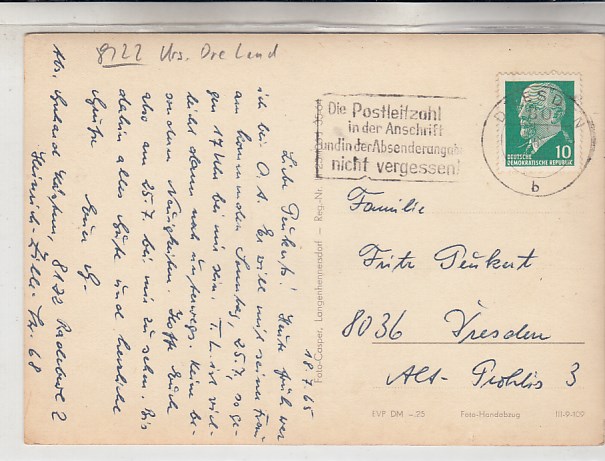 8122 Krs. Dresden Land
18.7.65
Liebe Peukerts! Heute früh war
ich bei O. A. Er will mit seiner Frau
am kommenden Sonntag, 25.7. so ge-
gen 17 Uhr bei mir sein. T. L. ist viel-
leicht dann noch unterwegs. Keine be-
sonderen Neuigkeiten. Hoffe Euch
also am 25.7. bei mir zu sehen. Bis
dahin alles Gute und herzliche
Grüße
Euer G.
Abs. Gerhard 8122 Radebeul 2
Heinrich-Zille-Str. 68
Foto-Casper, Langenhennersdorf – Reg.-Nr.
Die Postleitzahl
in der Anschrift
und in der Absenderangabe
nicht vergessen!
DRESDEN
b
DEUTSCHE
DEMOKRATISCHE REPUBLIK
10
Familie
Fritz Peukert
8036 Dresden
Alt-Prohlis 3
EVP DM –.25 Foto-Handabzug III-9-109